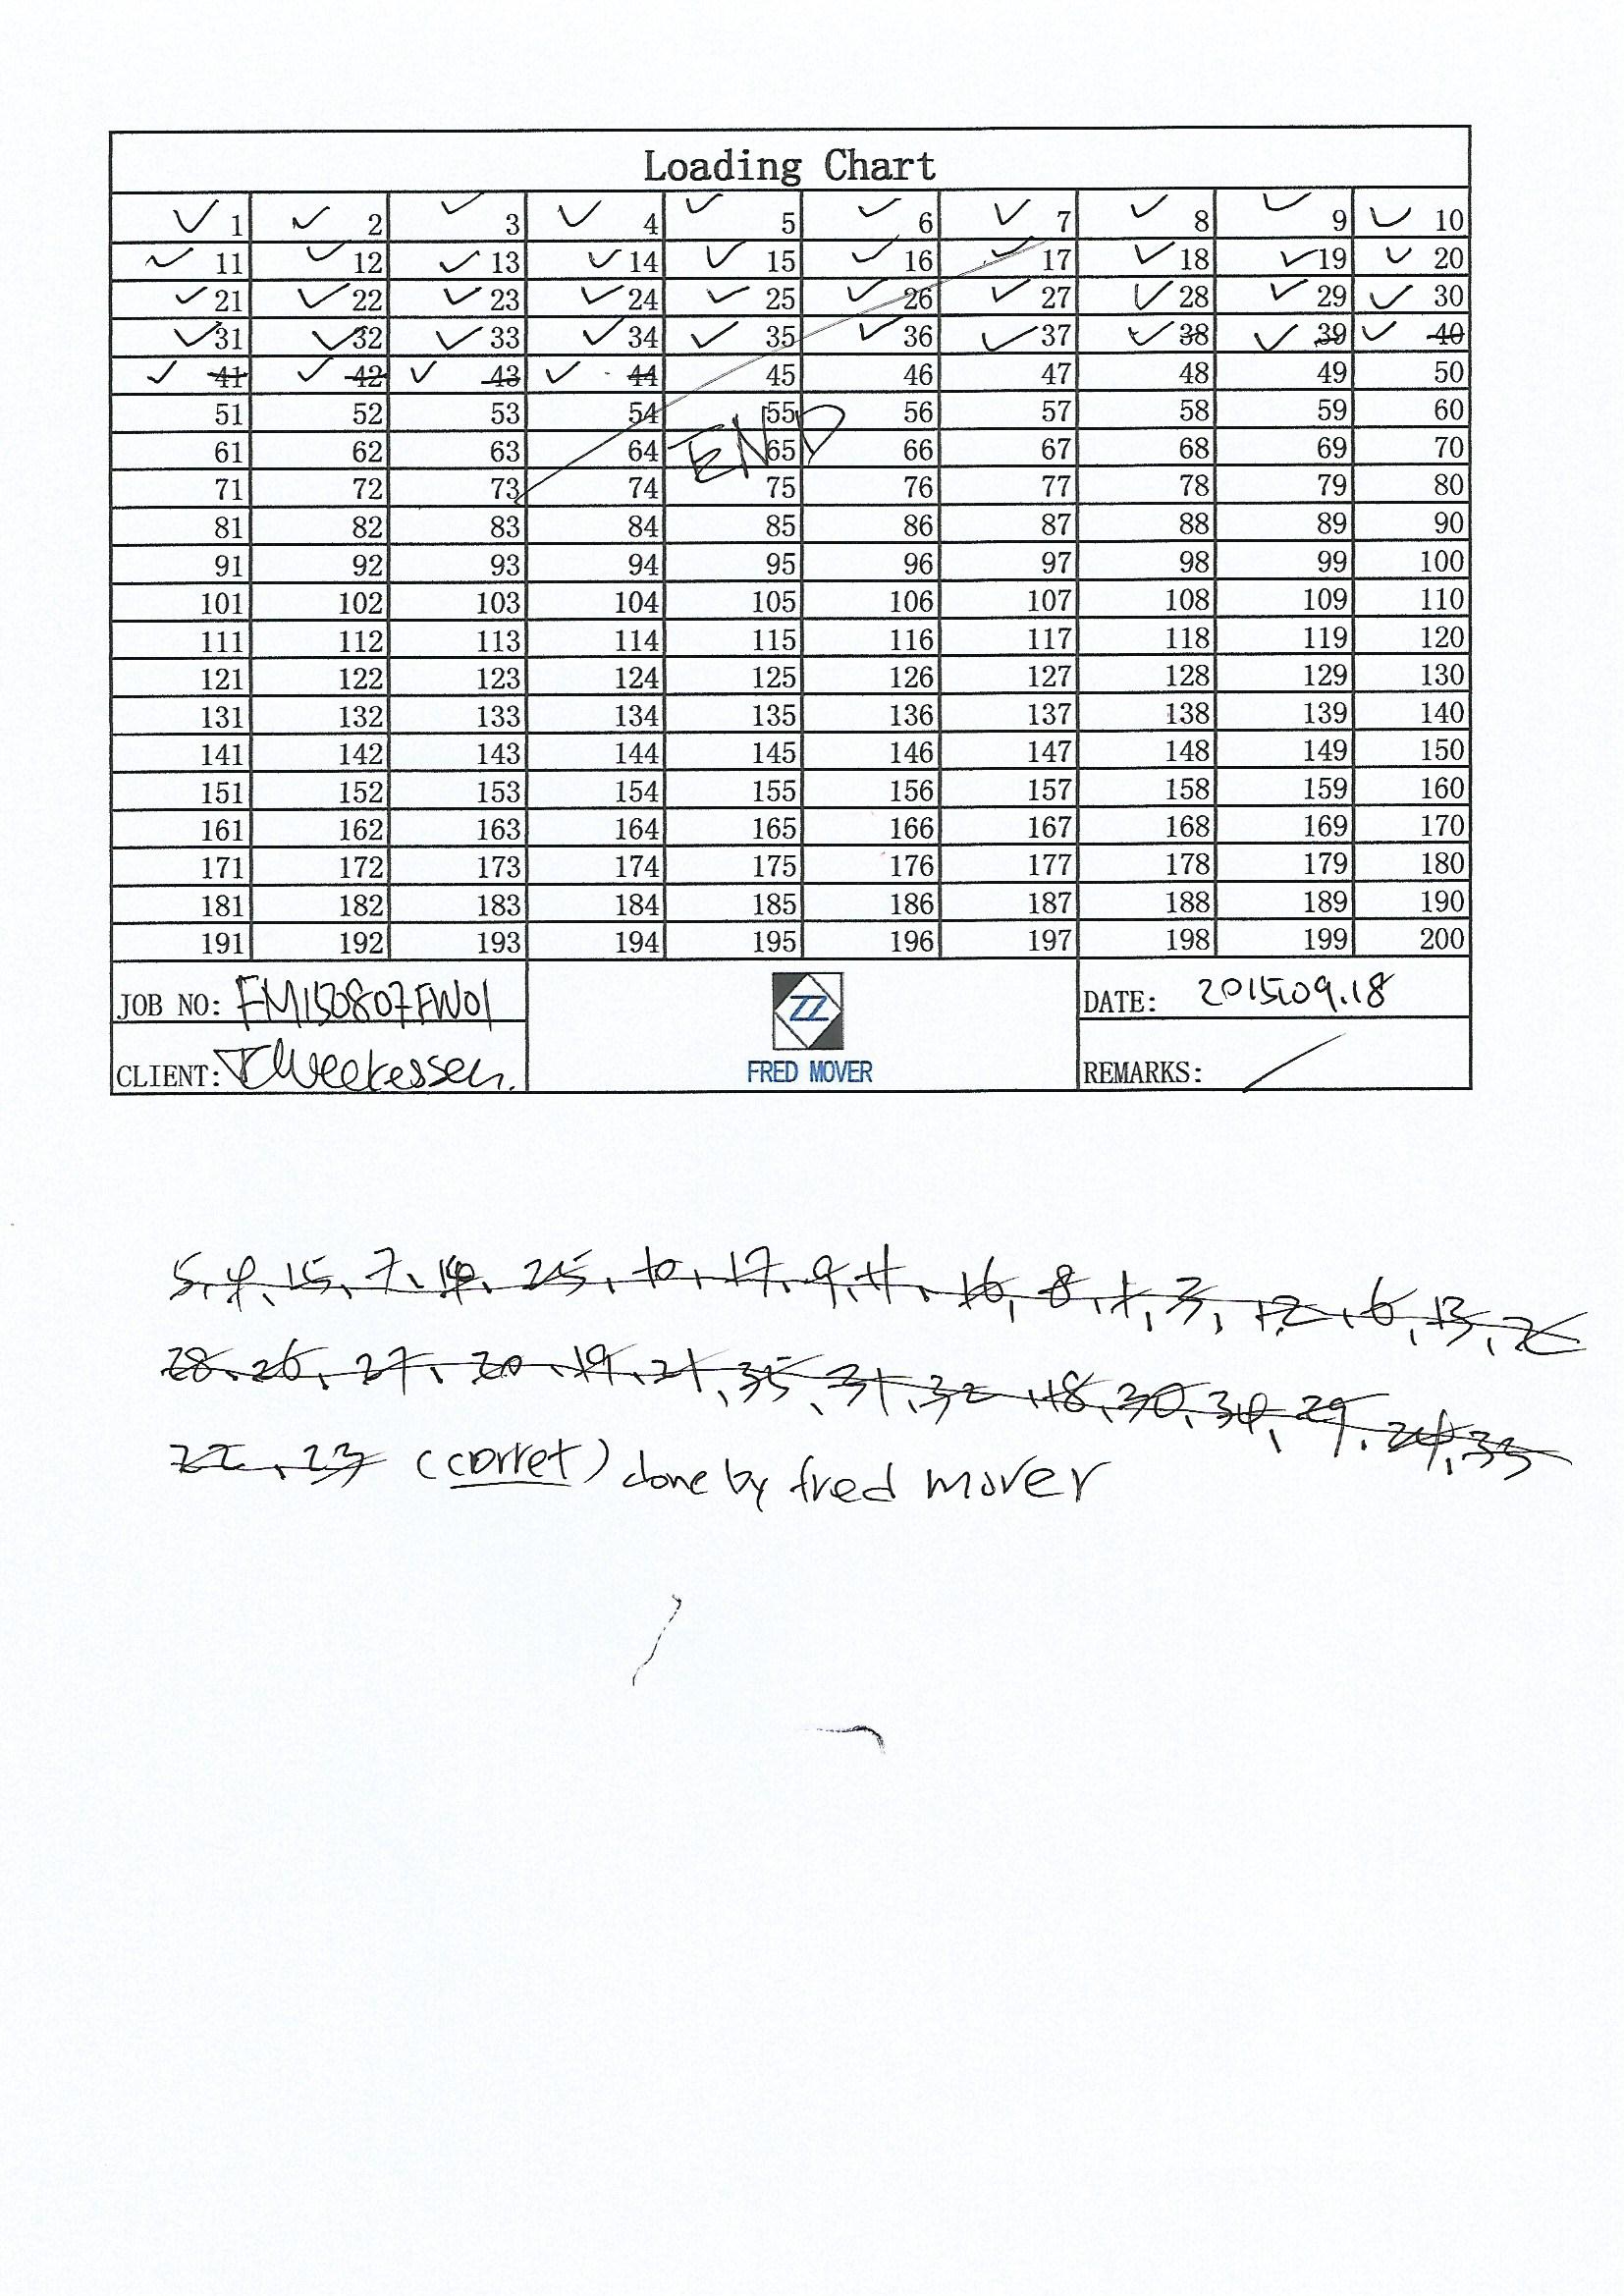 Loading Chart
1 2 3 4 5 6 7 8 9 10
11 12 13 14 15 16 17 18 19 20
21 22 23 24 25 26 27 28 29 30
31 32 33 34 35 36 37 38 39 40
41 42 43 44 45 46 47 48 49 50
51 52 53 54 55 56 57 58 59 60
61 62 63 64 65 66 67 68 69 70
END
71 72 73 74 75 76 77 78 79 80
81 82 83 84 85 86 87 88 89 90
91 92 93 94 95 96 97 98 99 100
101 102 103 104 105 106 107 108 109 110
111 112 113 114 115 116 117 118 119 120
121 122 123 124 125 126 127 128 129 130
131 132 133 134 135 136 137 138 139 140
141 142 143 144 145 146 147 148 149 150
151 152 153 154 155 156 157 158 159 160
161 162 163 164 165 166 167 168 169 170
171 172 173 174 175 176 177 178 179 180
181 182 183 184 185 186 187 188 189 190
191 192 193 194 195 196 197 198 199 200
JOB NO: FM150807FW01
DATE: 2015.09.18
CLIENT:
ZZ
FRED MOVER
REMARKS: /
5, 4, 15, 7, 14, 25, 10, 17, 9, 11, 16, 8, 1, 3, 12, 6, 13, 2
28, 26, 27, 20, 19, 21, 35, 31, 32, 18, 30, 34, 29, 24, 33
22, 23 (corret) done by fred mover